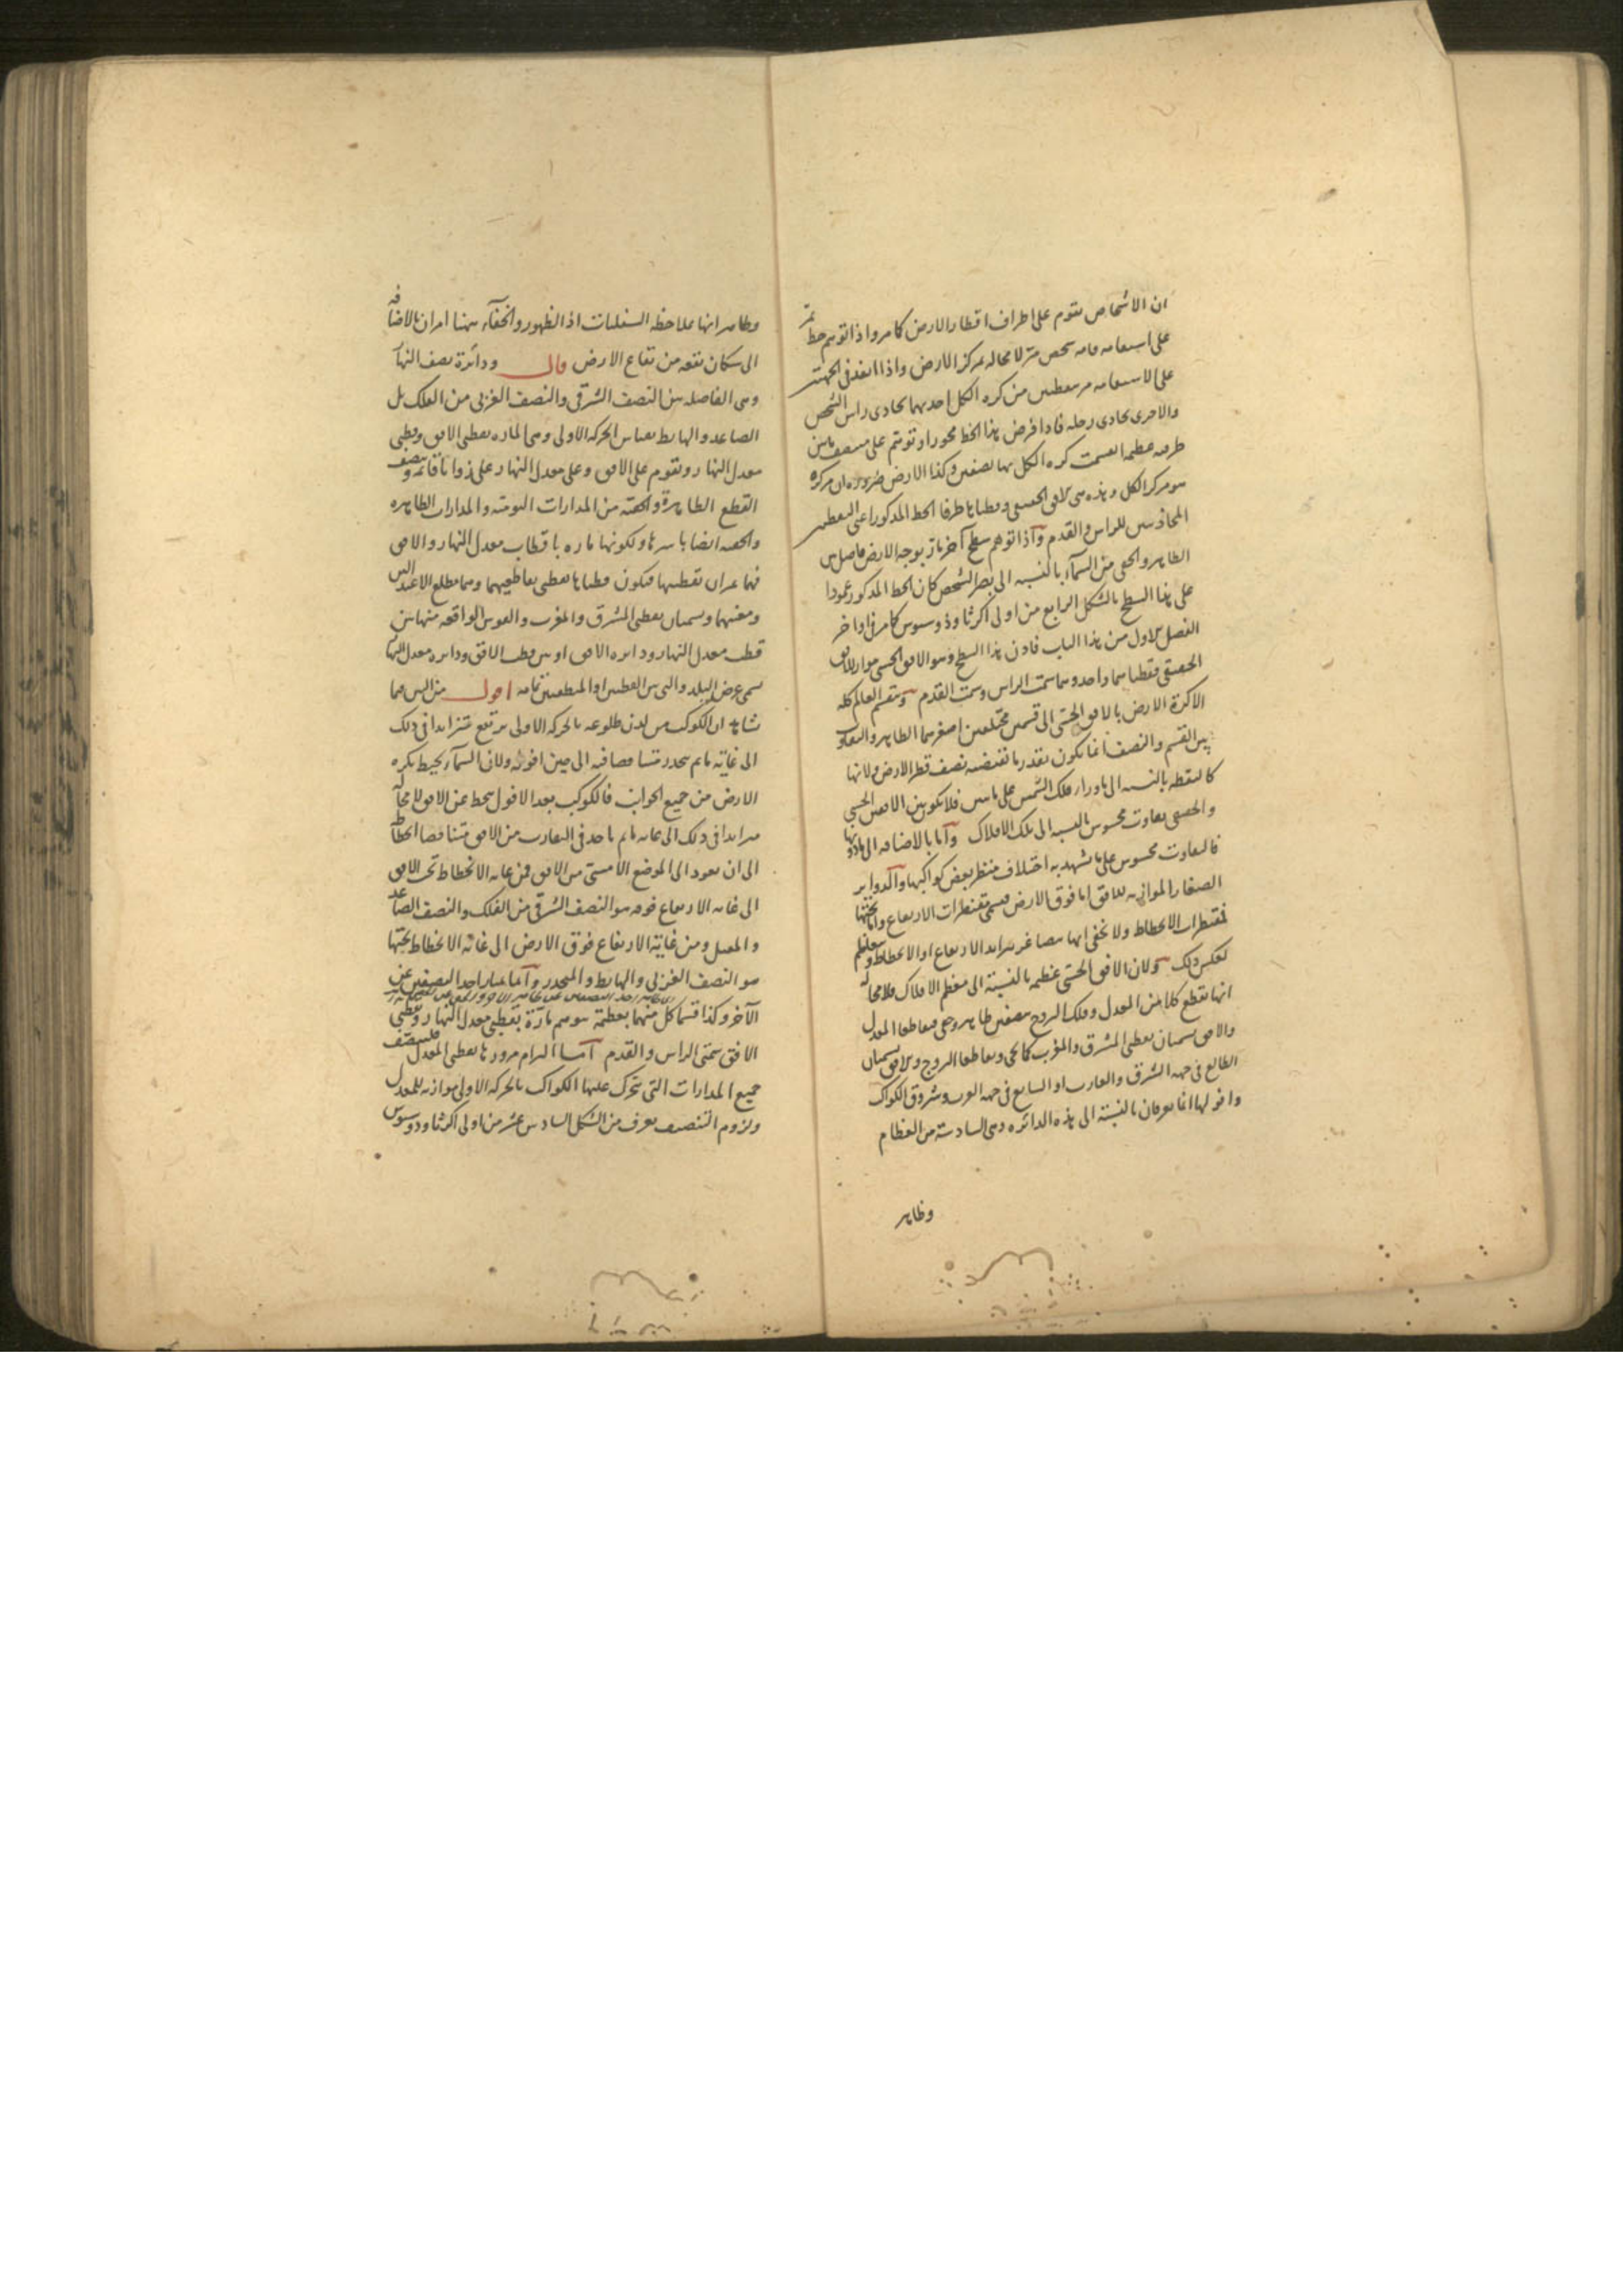 ان الاشخاص تقوم على اطراف اقطار الارض كما مر واذا توهم خط يمر
على استقامة قامة شخص مر لا محالة بمركز الارض واذا انفذ في الجهتين
على الاستقامة مر بنقطتين من كرة الكل احديهما تحاذي راس الشخص
والاخرى تحاذي رجله فاذا فرض هذا الخط محورا وتوهم على منتصف ما بين
طرفيه عظيمة انقسمت كرة الكل بها بنصفين وكذا الارض ضرورة ان مركزه
هو مركز الكل وهذه هي الافق الحقيقي وقطباها طرفا الخط المذكور اعني النقطتين
المحاذيتين للراس والقدم واذا توهم سطح آخر مار بوجه الارض فاصل بين
الظاهر والخفي من السماء بالنسبة الى بصر الشخص كان الخط المذكور عمودا
على هذا السطح بالشكل الرابع من اولى اكر ثاوذوسيوس كما مر في اواخر
الفصل الاول من هذا الباب فاذن هذا السطح وهو الافق الحسي مواز للافق
الحقيقي فقطباهما واحد وهما سمت الراس وسمت القدم وينقسم العالم كله
الا كرة الارض بالافق الحسي الى قسمين مختلفين اصغرهما الظاهر والتفاوت
بين القسم والنصف انما يكون بقدر ما تقتضيه نصف قطر الارض ولانها
كالنقطة بالنسبة الى ما وراء فلك الشمس على ما بين فلا يكون بين الافقين الحسي
والحقيقي تفاوت محسوس بالنسبة الى تلك الافلاك وامّا بالاضافة الى ما دونها
فالتفاوت محسوس على ما يشهد به اختلاف منظر بعض كواكبها والدواير
الصغار الموازية للافق اما فوق الارض فيسمى مقنطرات الارتفاع واما تحتها
فمقنطرات الانحطاط ولا يخفى انها تتصاغر بتزايد الارتفاع او الانحطاط وتتعاظم
بعكس ذلك ولان الافق الحسي عظيمة بالنسبة الى معظم الافلاك فلا محالة
انها تقطع كلا من المعدل وفلك البروج بنصفين ظاهر وخفي فتقاطعا المعدل
والافق تسميان نقطتي المشرق والمغرب كما يجئ وتقاطعا البروج والافق تسميان
الطالع في جهة الشرق والغارب او السابع في جهة الغرب وشروق الكواكب
وافولها انما يعرفان بالنسبة الى هذه الدائرة وهي السادسة من العظام
وظاهر
وظاهر انها بملاحظة السفليات اذ الظهور والخفاء ههنا امران بالاضافة
الى سكان بقعة من بقاع الارض قال ودائرة نصف النهار
وهي الفاصلة بين النصف الشرقي والنصف الغربي من الفلك بل
الصاعد والهابط بقياس الحركة الاولى وهي المارة بقطبي الافق وقطبي
معدل النهار وتقوم على الافق وعلى معدل النهار على زوايا قائمة وتنصف
القطع الظاهرة والخفية من المدارات اليومية والمدارات الظاهرة
والخفية ايضا باسرها ولكونها مارة باقطاب معدل النهار والافق
فهما يمران بقطبيها فتكون قطباها نقطتي تقاطعيهما وهما مطلع الاعتدالين
ومغيبهما ويسميان نقطتي المشرق والمغرب والقوس الواقعة منها بين
قطب معدل النهار ودائرة الافق او بين قطب الافق ودائرة معدل النهار
يسمى عرض البلد والتي بين القطبين او المنطقتين تمامه اقول من البين مما
نشاهد ان الكوكب من لدن طلوعه بالحركة الاولى يرتفع متزايدا في ذلك
الى غاية ما ثم ينحدر متناقصا فيه الى حين افوله ولان السماء محيط بكرة
الارض من جميع الجوانب فالكوكب بعد الافول ينحط عن الافق لا محالة
متزايدا في ذلك الى غاية ما ثم ياخذ في التقارب من الافق متناقصا انحطاطه
الى ان يعود الى الموضع الامسي من الافق فمن غاية الانحطاط تحت الافق
الى غاية الارتفاع فوقه هو النصف الشرقي من الفلك والنصف الصاعد
والمقبل ومن غاية الارتفاع فوق الارض الى غاية الانحطاط تحتها
هو النصف الغربي والهابط والمنحدر وامّا امتياز احد النصفين عن
الآخر وكذا قسما كل منهما بعظيمة توهم مارة بقطبي معدل النهار وبقطبي
الافق سمتي الراس والقدم امّا التزام مرورها بقطبي المعدل فلتنصف
جميع المدارات التي تتحرك عليها الكواكب بالحركة الاولى موازية للمعدل
ولزوم التنصيف يعرف من الشكل السادس عشر من اولى اكر ثاوذوسيوس